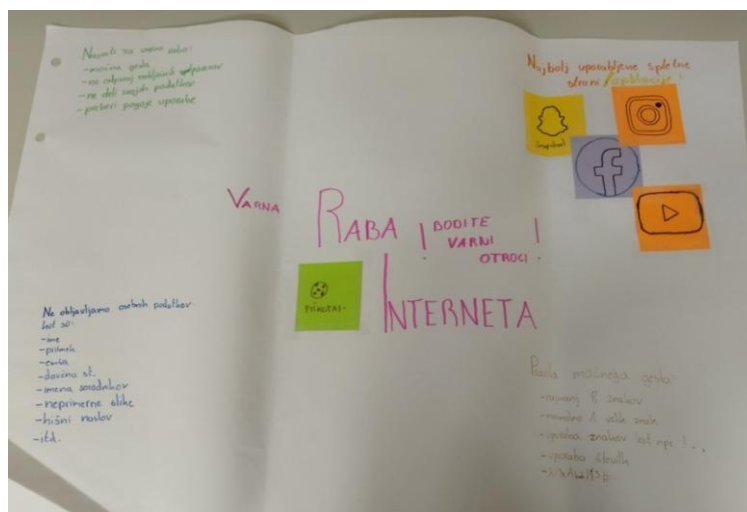 Nasveti za varno rabo:
-močna gesla
-ne odpiraj neključnih
-ne deli svojih podatkov
-preberi pogoje uporabe
Najbolj uporabljene spletne
strani/aplikacije:
Snapchat
VARNA
RABA
! BODITE
VARNI
OTROCI !
INTERNETA
PIŠKOTKI-
Ne objavljamo osebnih podatkov:
kot so:
-ime
-priimek
-davčna št.
-imena sorodnikov
-neprimerne slike
-hišni naslov
-itd.
močnega gesla:
-najmanj 8 znakov
1 velik znak
-uporaba znakov kot npr. !.,
-uporaba številk